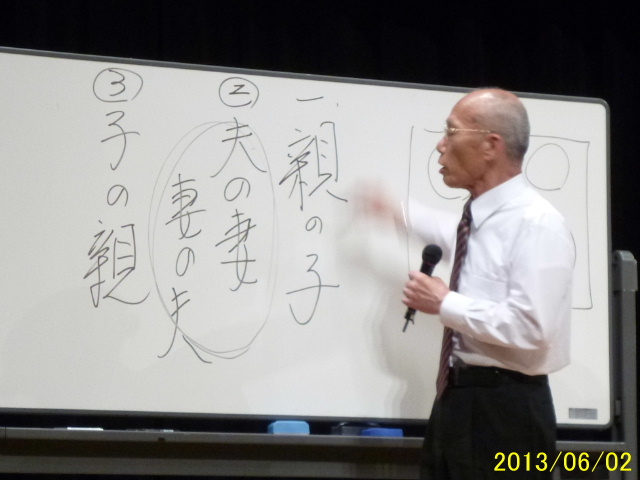 一、親の子
②夫の妻
妻の夫
③子の親
2013/06/02